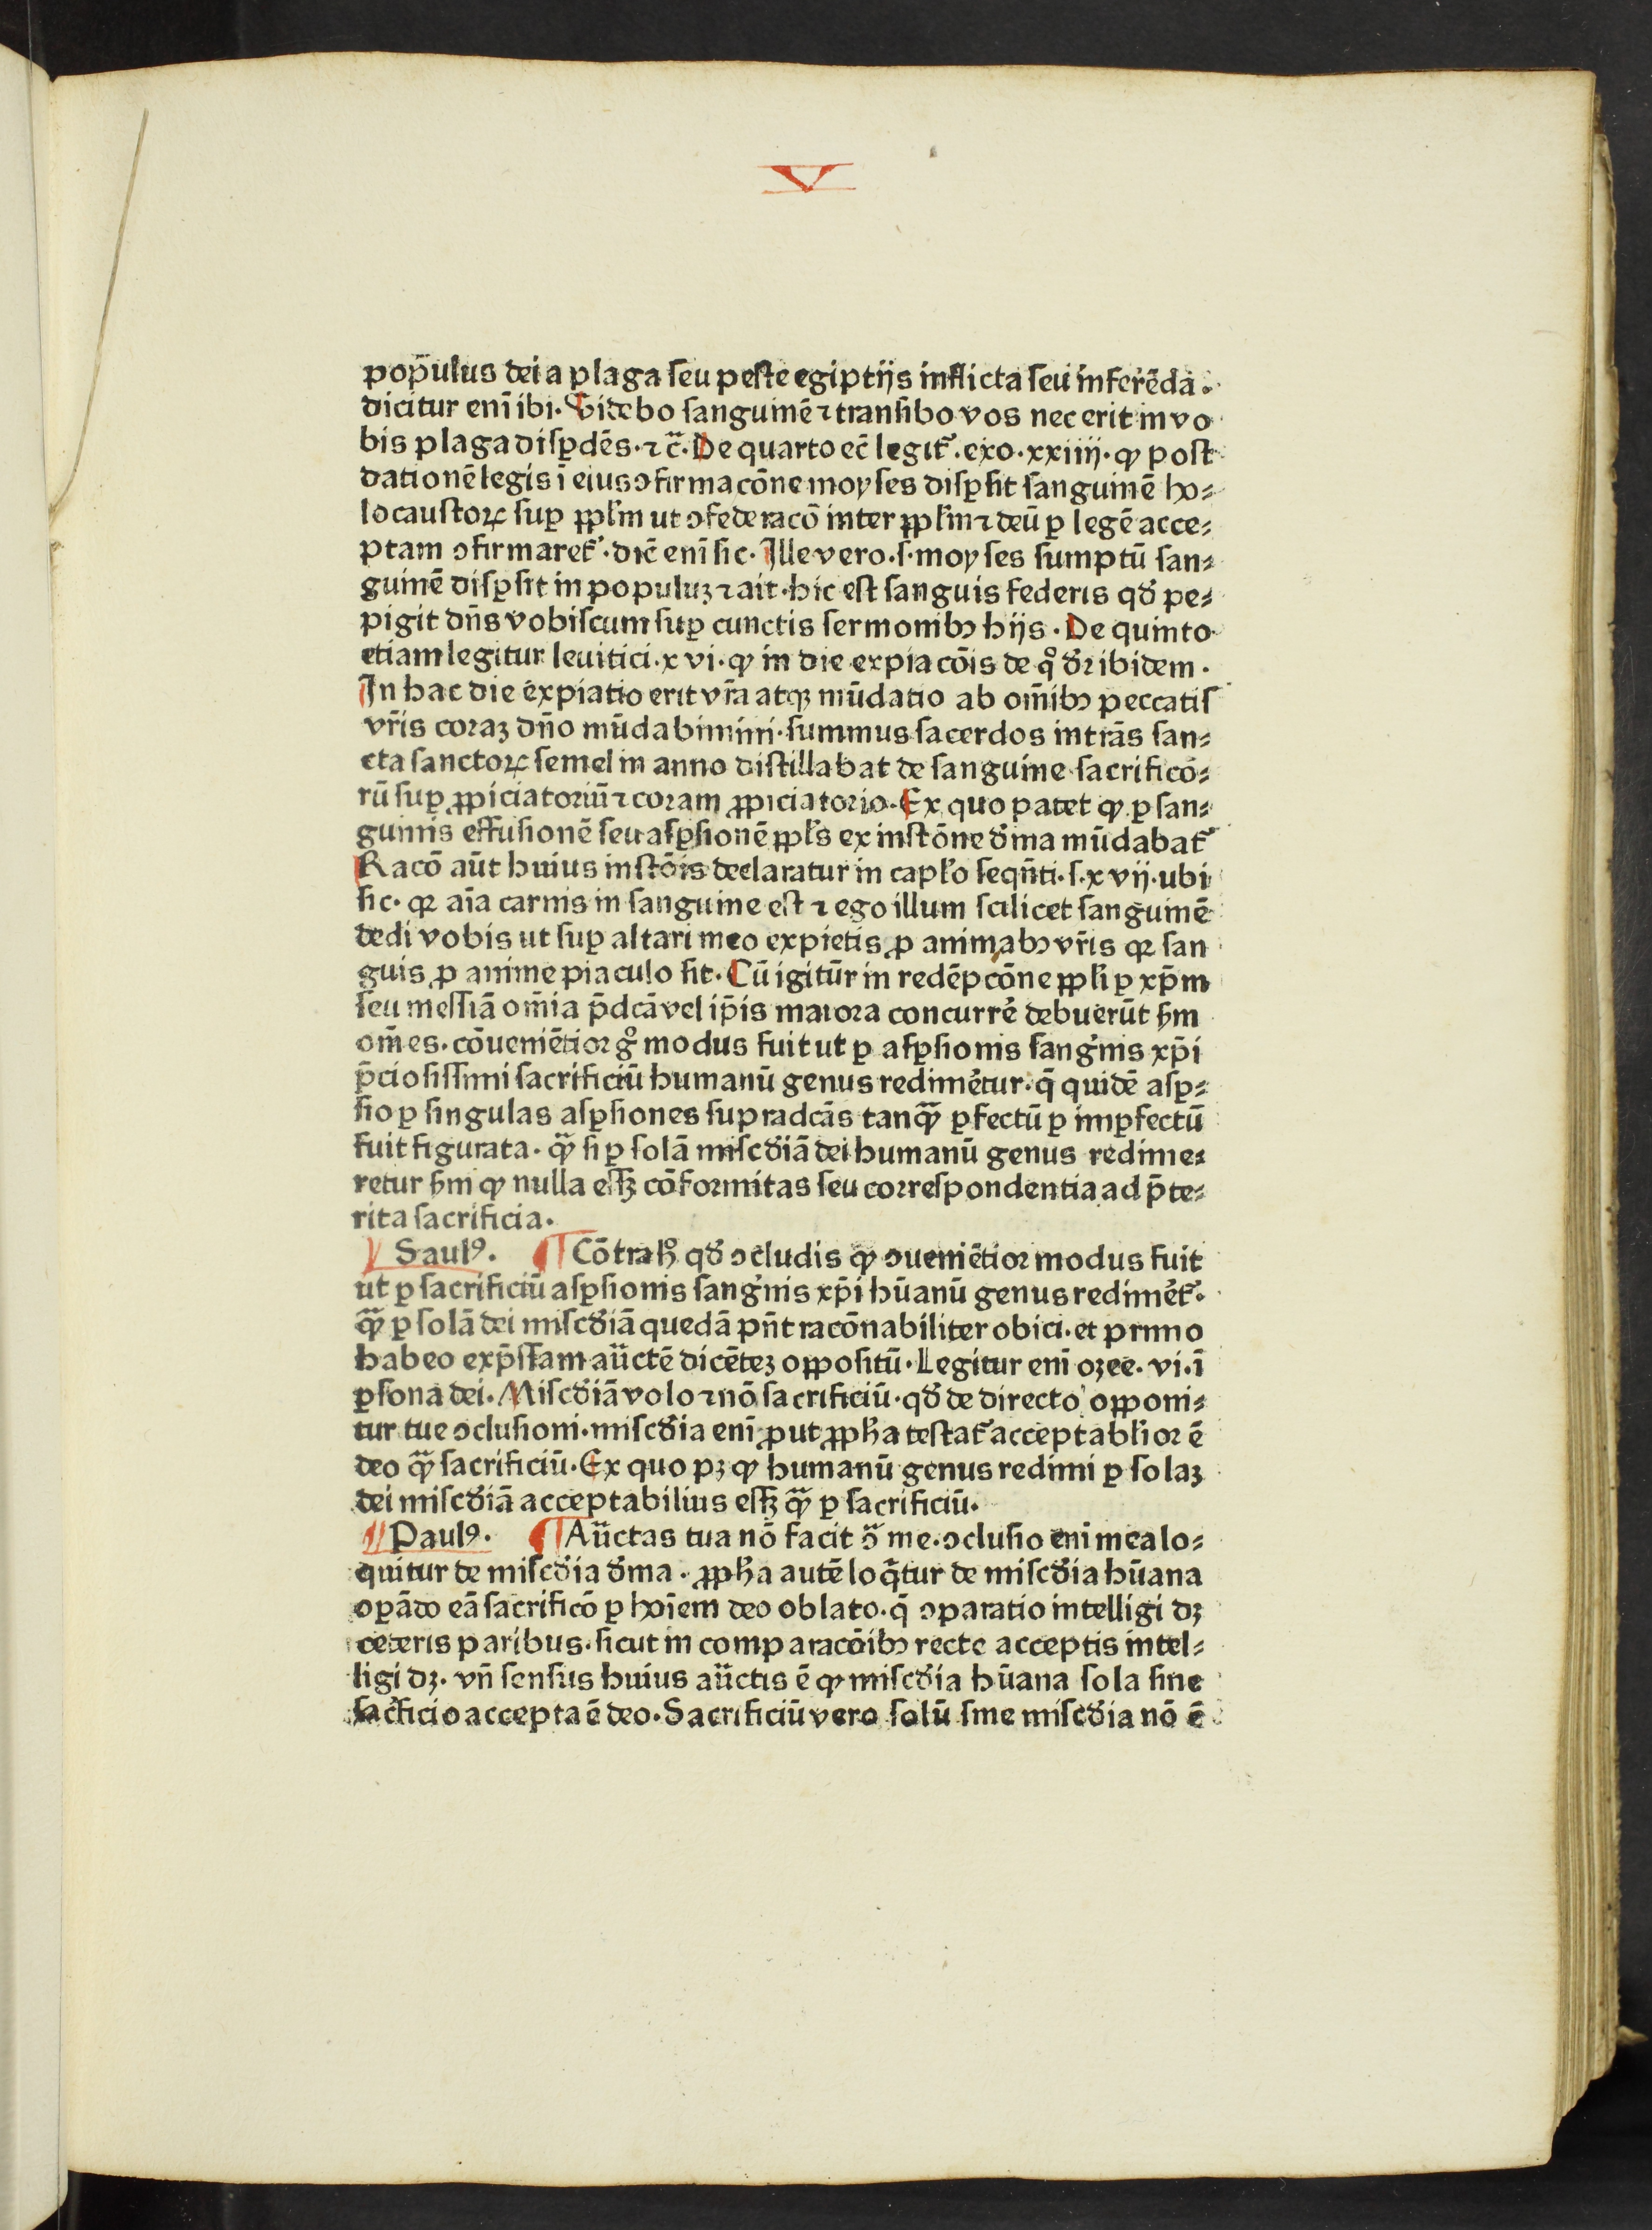 V
pop̄ulus dei a plaga ſeu peſte egiptijs inflicta ſeu inferēda.
dicitur enī ibi. Videbo ſanguinē ⁊ tranſibo vos nec erit in vo
bis plaga diſꝑdēs. ⁊ c̄. De quarto ec̄ legit᷑. exo. xxiiij. ꝙ poſt
dationē legis ī eius ↄfirmacōne moyſes diſꝑſit ſanguinē ho⸗
locauſtoꝝ ſuꝑ ꝓpl̄m ut ↄfederacō inter ꝓpl̄m ⁊ deū ꝑ legē acce⸗
ptam ↄfirmaret᷑. dic̄ enī ſic. Ille vero. ſ. moyſes ſumptū ſan⸗
guinē diſꝑſit in populuꝫ ⁊ ait. hic eſt ſanguis federis qd̓ pe⸗
pigit dn̄s vobiſcum ſuꝑ cunctis ſermonibꝰ hijs. De quinto
etiam legitur leuitici. xvi. ꝙ in die expiacōis de qͦ dr̄ ibidem.
In hac die expiatio erit vr̄a atqꝫ mūdatio ab om̄ibꝰ peccatiſ
vr̄is coraꝫ dn̄o mūdabimini. ſummus ſacerdos intrās ſan⸗
cta ſanctoꝝ ſemel in anno diſtillabat de ſanguine ſacrificō⸗
rū ſuꝑ ꝓpiciatoriū ⁊ coram ꝓpiciatorio. Ex quo patet ꝙ ꝑ ſan⸗
guinis effuſionē ſeu aſꝑſionē ꝓpl̄s ex inſtōne d̓ina mūdabat᷑
Racō aūt huius inſtōis declaratur in capl̓o ſeqn̄ti. ſ. xvij. ubi
ſic. qꝛ aīa carnis in ſanguine eſt ⁊ ego illum ſcilicet ſanguinē
dedi vobis ut ſuꝑ altari meo expietis ꝓ animabꝰ vr̄is qꝛ ſan
guis ꝓ anime piaculo ſit. Cū igitur in redēpcōne ꝓpl̓i ꝑ xp̄m
ſeu meſſiā om̄ia p̄dcā vel ip̄is maiora concurrē debuerūt ẜm
om̄es. cōueniētior gͦ modus fuit ut ꝑ aſꝑſionis ſang̓nis xp̄i
p̄cioſiſſimi ſacrificiū humanū genus redimētur. q̄ quidē aſꝑ⸗
ſio ꝑ ſingulas aſꝑſiones ſupradcās tanqᷓ ꝑfectū ꝑ imꝑfectū
fuit figurata. qᷓ ſi ꝑ ſolā miſcd̓iā dei humanū genus redime⸗
retur ẜm ꝙ nulla eſſꝫ cōformitas ſeu correſpondentia ad p̄te⸗
rita ſacrificia.
Saulꝰ. ¶ Cōtra hͦ qd̓ ↄcludis ꝙ ↄueniētior modus fuit
ut ꝑ ſacrificiū aſꝑſionis ſang̓nis xp̄i hūanū genus redimēt᷑.
qᷓ ꝑ ſolā dei miſcd̓iā quedā pn̄t racōnabiliter obici. et primo
habeo exp̄ſſam aūctē dicēteꝫ oꝓpoſitū. Legitur enī ozee. vi. ī
ꝑſona dei. Miſcd̓iā volo ⁊ nō ſacrificiū. qd̓ de directo oꝓponi⸗
tur tue ↄcluſioni. miſcd̓ia enī ꝓut ꝓph̄a teſtat᷑ acceptabl̓ior ē
deo qᷓ ſacrificiū. Ex quo pꝫ ꝙ humanū genus redimi ꝑ ſolaꝫ
dei miſcd̓iā acceptabilius eſſꝫ qᷓ ꝑ ſacrificiū.
Paulꝰ. ¶ Aūctas tua nō facit ↄ̄ me. ↄcluſio enī mea lo⸗
quitur de miſcd̓ia d̓ina. ꝓph̄a autē loq̄tur de miſcd̓ia hūana
oꝑādo eā ſacrificō ꝑ hoīem deo oblato. q̄ ↄparatio intelligi dꝫ
ceteris paribus. ſicut in comparacōibꝰ recte acceptis intel⸗
ligi dꝫ. vn̄ ſenſus huius aūctis ē ꝙ miſcd̓ia hūana ſola ſine
ſac̓ficio accepta ē deo. Sacrificiū vero ſolū ſine miſcd̓ia nō ē